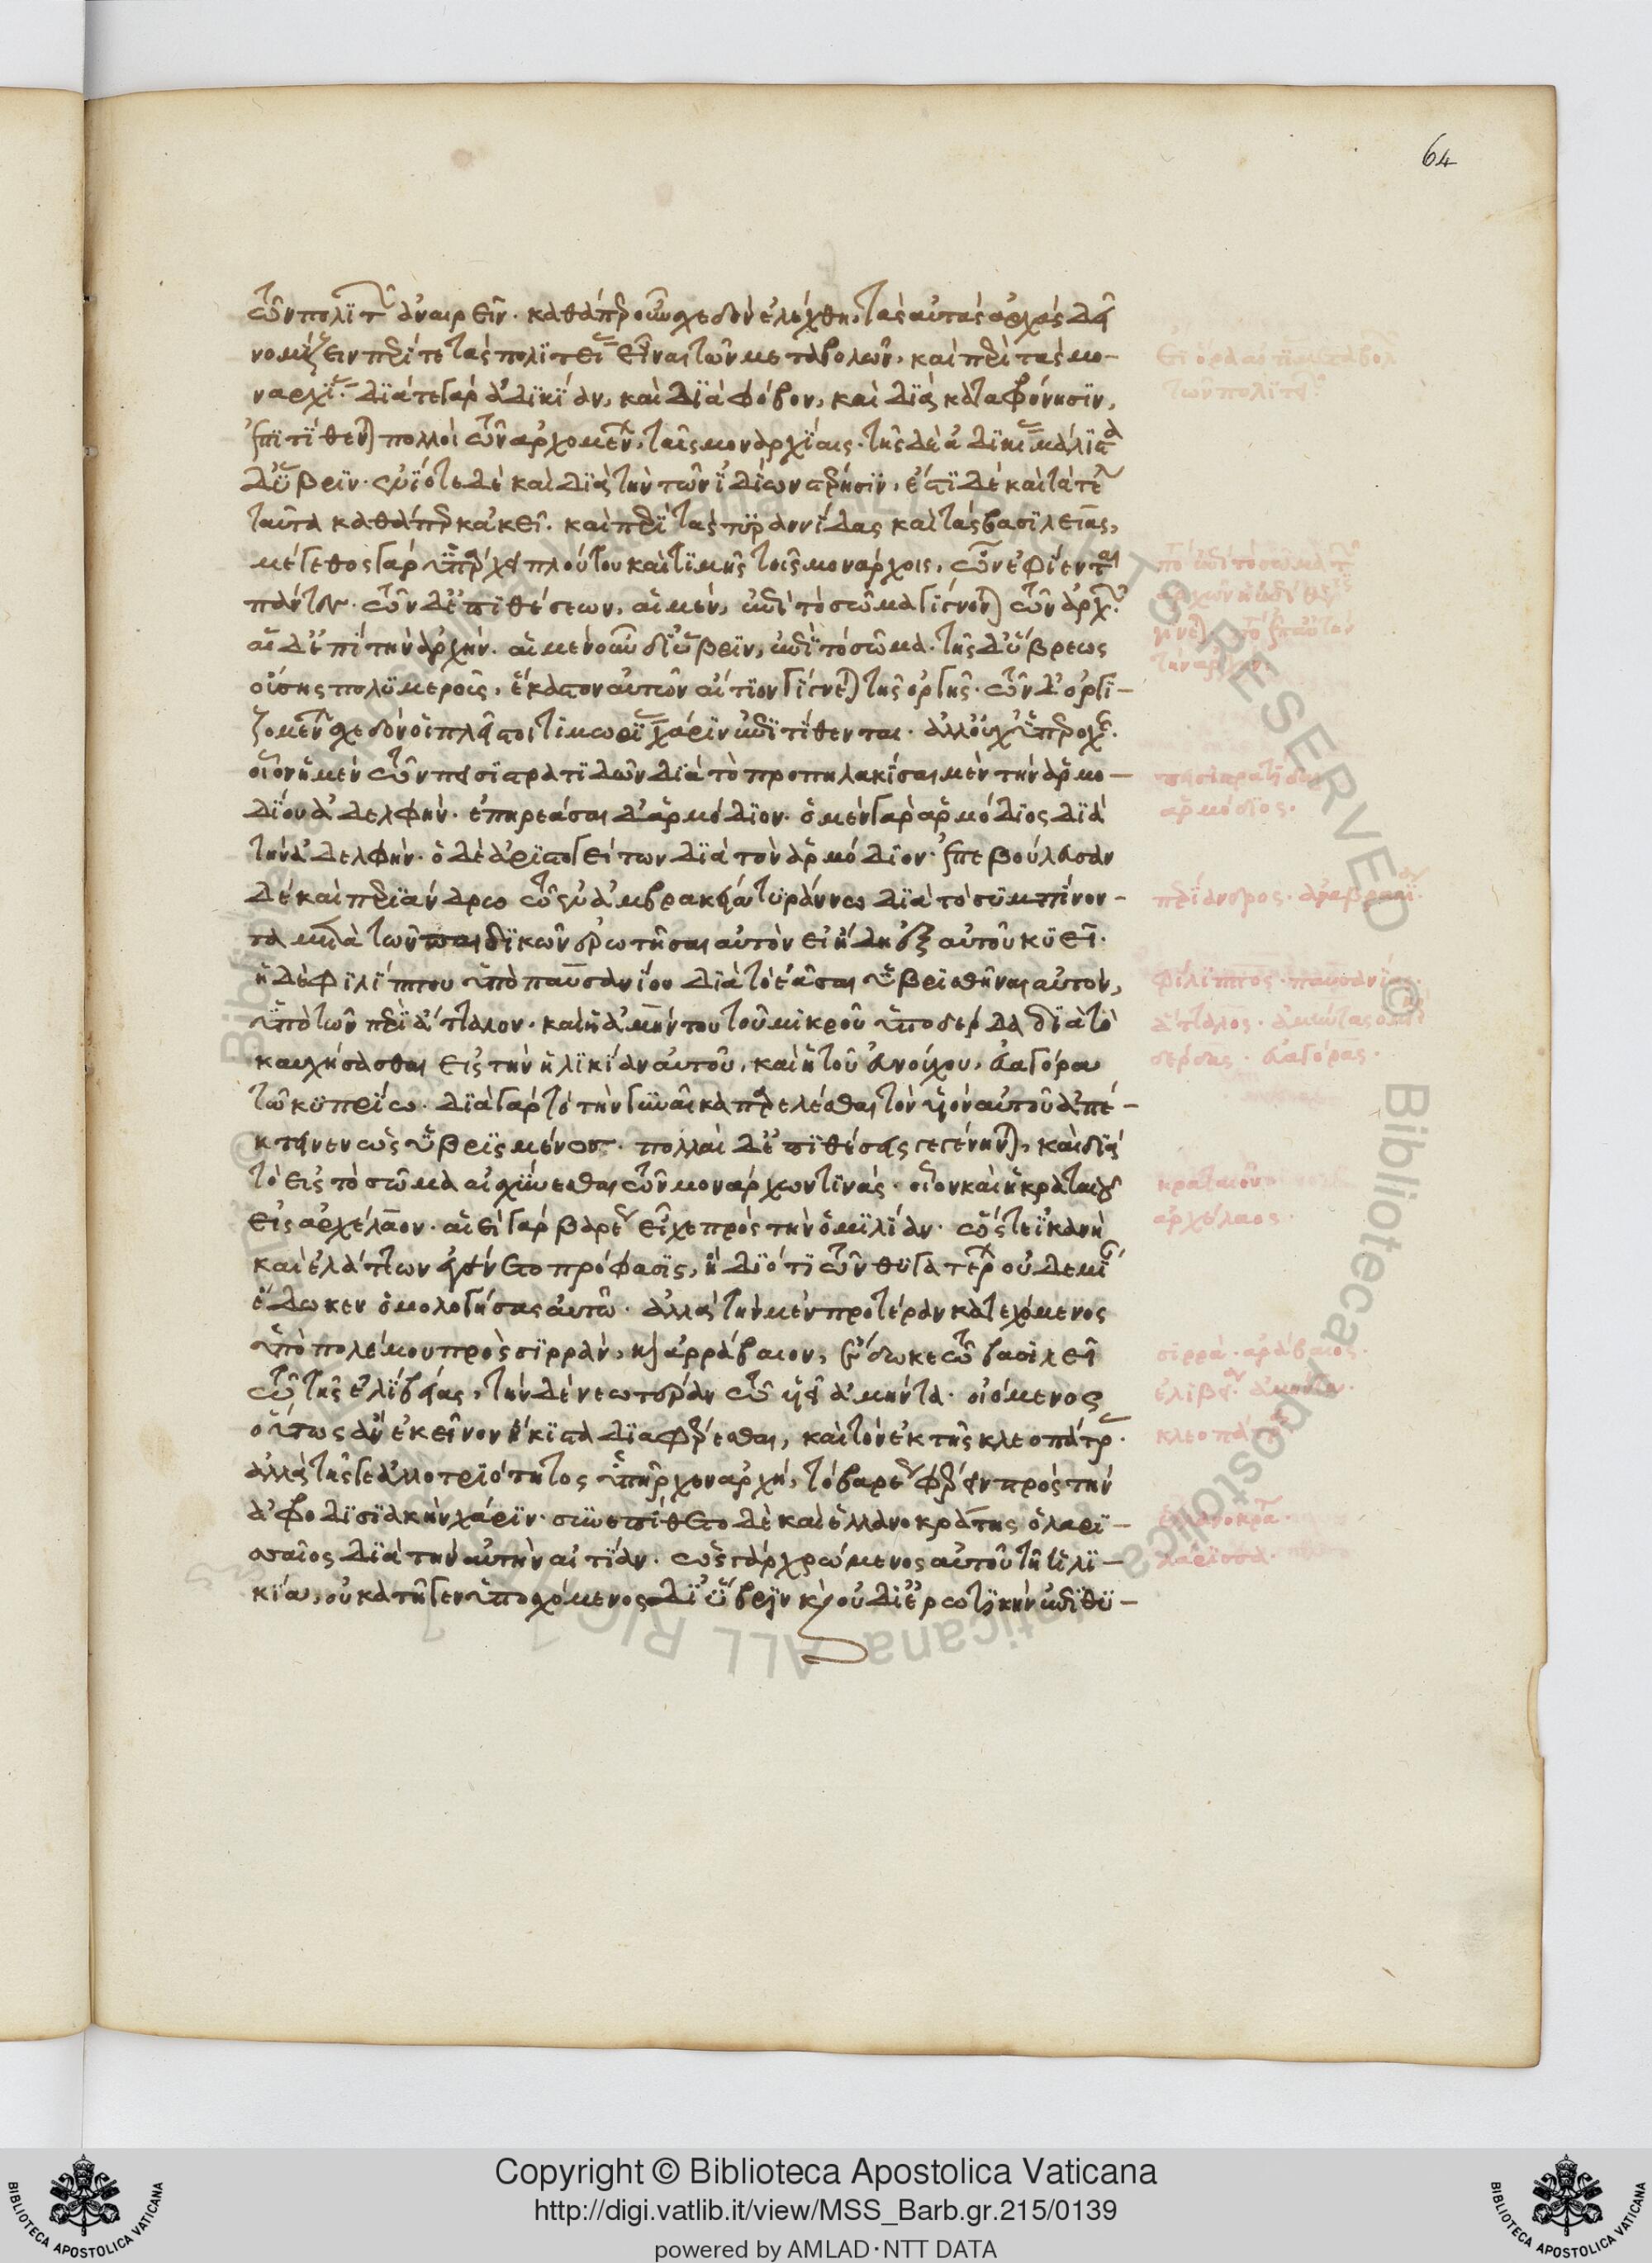 64
τῶν πολιτῶν ἀναιρεῖν. καθάπερ οὖν σχεδὸν ἐλέχθη, τὰς αὐτὰς ἀρχὰς δεῖ
νομίζειν περί τε τὰς πολιτείας εἶναι τῶν μεταβολῶν, καὶ περὶ τὰς μο-
ναρχίας. διά τε γὰρ ἀδικίαν, καὶ διὰ φόβον, καὶ διὰ καταφρόνησιν,
ἐπιτίθενται πολλοὶ τῶν ἀρχομένων ταῖς μοναρχίαις. τῆς δὲ ἀδικίας μάλιστα
δι' ὕβριν. ἐνίοτε δὲ καὶ διὰ τὴν τῶν ἰδίων στέρησιν. ἔστι δὲ καὶ τὰ τέλη
ταῦτα καθάπερ κἀκεῖ. καὶ περὶ τὰς τυραννίδας καὶ τὰς βασιλείας,
μέγεθος γὰρ ὑπάρχει πλούτου καὶ τιμῆς τοῖς μονάρχοις, ὧν ἐφίενται
πάντες. τῶν δ' ἐπιθέσεων, αἱ μὲν, ἐπὶ τὸ σῶμα γίγνονται τῶν ἀρχόντων.
αἱ δ' ἐπὶ τὴν ἀρχήν. αἱ μὲν οὖν δι' ὕβριν, ἐπὶ τὸ σῶμα. τῆς δ' ὕβρεως
οὔσης πολυμεροῦς, ἕκαστον αὐτῶν αἴτιον γίγνεται τῆς ὀργῆς. τῶν δ' ὀργι-
ζομένων σχεδὸν οἱ πλεῖστοι τιμωρίας χάριν ἐπιτίθενται. ἀλλ' οὐχ ὑπεροχῆς.
οἷον ἡ μὲν τῶν πεισιστρατιδῶν διὰ τὸ προπηλακίσαι μὲν τὴν ἁρμο-
δίου ἀδελφήν. ἐπηρεάσαι δ' ἁρμόδιον. ὁ μὲν γὰρ ἁρμόδιος διὰ
τὴν ἀδελφήν. ὁ δὲ ἀριστογείτων διὰ τὸν ἁρμόδιον. ἐπεβούλευσαν
δὲ καὶ περιάνδρω τῶ ἐν ἀμβρακία τυράννω διὰ τὸ συμπίνον-
τα μετὰ τῶν παιδικῶν ἐρωτῆσαι αὐτὸν εἰ ἤδη ἐξ αὐτοῦ κύει.
ἡ δὲ φιλίππου ὑπὸ παυσανίου διὰ τὸ ἐᾶσαι ὑβρισθῆναι αὐτὸν,
ὑπὸ τῶν περὶ ἄτταλον. καὶ ἡ ἀμύντου τοῦ μικροῦ ὑπὸ δέρδα διὰ τὸ
καυχήσασθαι εἰς τὴν ἡλικίαν αὐτοῦ. καὶ ἡ τοῦ εὐνούχου, εὐαγόρα
τῶ κυπρίω. διὰ γὰρ τὸ τὴν γυναῖκα παρελέσθαι τὸν υἱὸν αὐτοῦ ἀπέ-
κτεινεν ὡς ὑβρισμένος. πολλαὶ δ' ἐπιθέσεις γεγένηνται, καὶ διὰ
τὸ εἰς τὸ σῶμα αἰσχύνεσθαι τῶν μονάρχων τινάς. οἷον καὶ ἡ κραταιοῦ
εἰς ἀρχέλαον. ἀεὶ γὰρ βαρέως εἶχε πρὸς τὴν ὁμιλίαν. ὥστε ἱκανὴ
καὶ ἐλάττων ἐγένετο πρόφασις, ἢ διότι τῶν θυγατέρων οὐδεμίαν
ἔδωκεν ὁμολογήσας αὐτῶ. ἀλλὰ τὴν μὲν προτέραν κατεχόμενος
ὑπὸ πολέμου πρὸς σίρραν, καὶ ἀρράβαιον, ἔδωκε τῶ βασιλεῖ
τῶ τῆς ἐλιβείας, τὴν δὲ νεωτέραν τῶ υἱεῖ ἀμύντα. οἰόμενος
οὕτως ἂν ἐκεῖνον ἥκιστα διαφέρεσθαι, καὶ τὸν ἐκ τῆς κλεοπάτρας.
ἀλλὰ τῆς γε ἀλλοτριότητος ὑπῆρχεν ἀρχὴ, τὸ βαρέως φέρειν πρὸς τὴν
ἀφροδισιακὴν χάριν. συνεπέθετο δὲ καὶ ἑλλανοκράτης ὁ λαρι-
σσαῖος διὰ τὴν αὐτὴν αἰτίαν. ὡς γὰρ χρώμενος αὐτοῦ τῆ ἡλι-
κία, οὐ κατῆγεν ὑποσχόμενος δι' ὕβριν καὶ οὐ δι' ἐρωτικὴν ἐπιθυ-
πεισιστρατίδαι
ἁρμόδιος.
περίανδρος. ἀμβρακία.
φίλιππος. παυσανίας.
ἄτταλος. ἀμύντας ὁ μικρὸς
δέρδης. εὐαγόρας.
κραταιοῦ
ἀρχέλαος.
σίρρα. ἀράβαιος.
ἐλιβεία. ἀμύντα.
κλεοπάτρα
ἑλλανοκράτης.
λάρισσα.
Copyright © Biblioteca Apostolica Vaticana
http://digi.vatlib.it/view/MSS_Barb.gr.215/0139
powered by AMLAD·NTT DATA
BIBLIOTECA APOSTOLICA VATICANA
BIBLIOTECA APOSTOLICA VATICANA